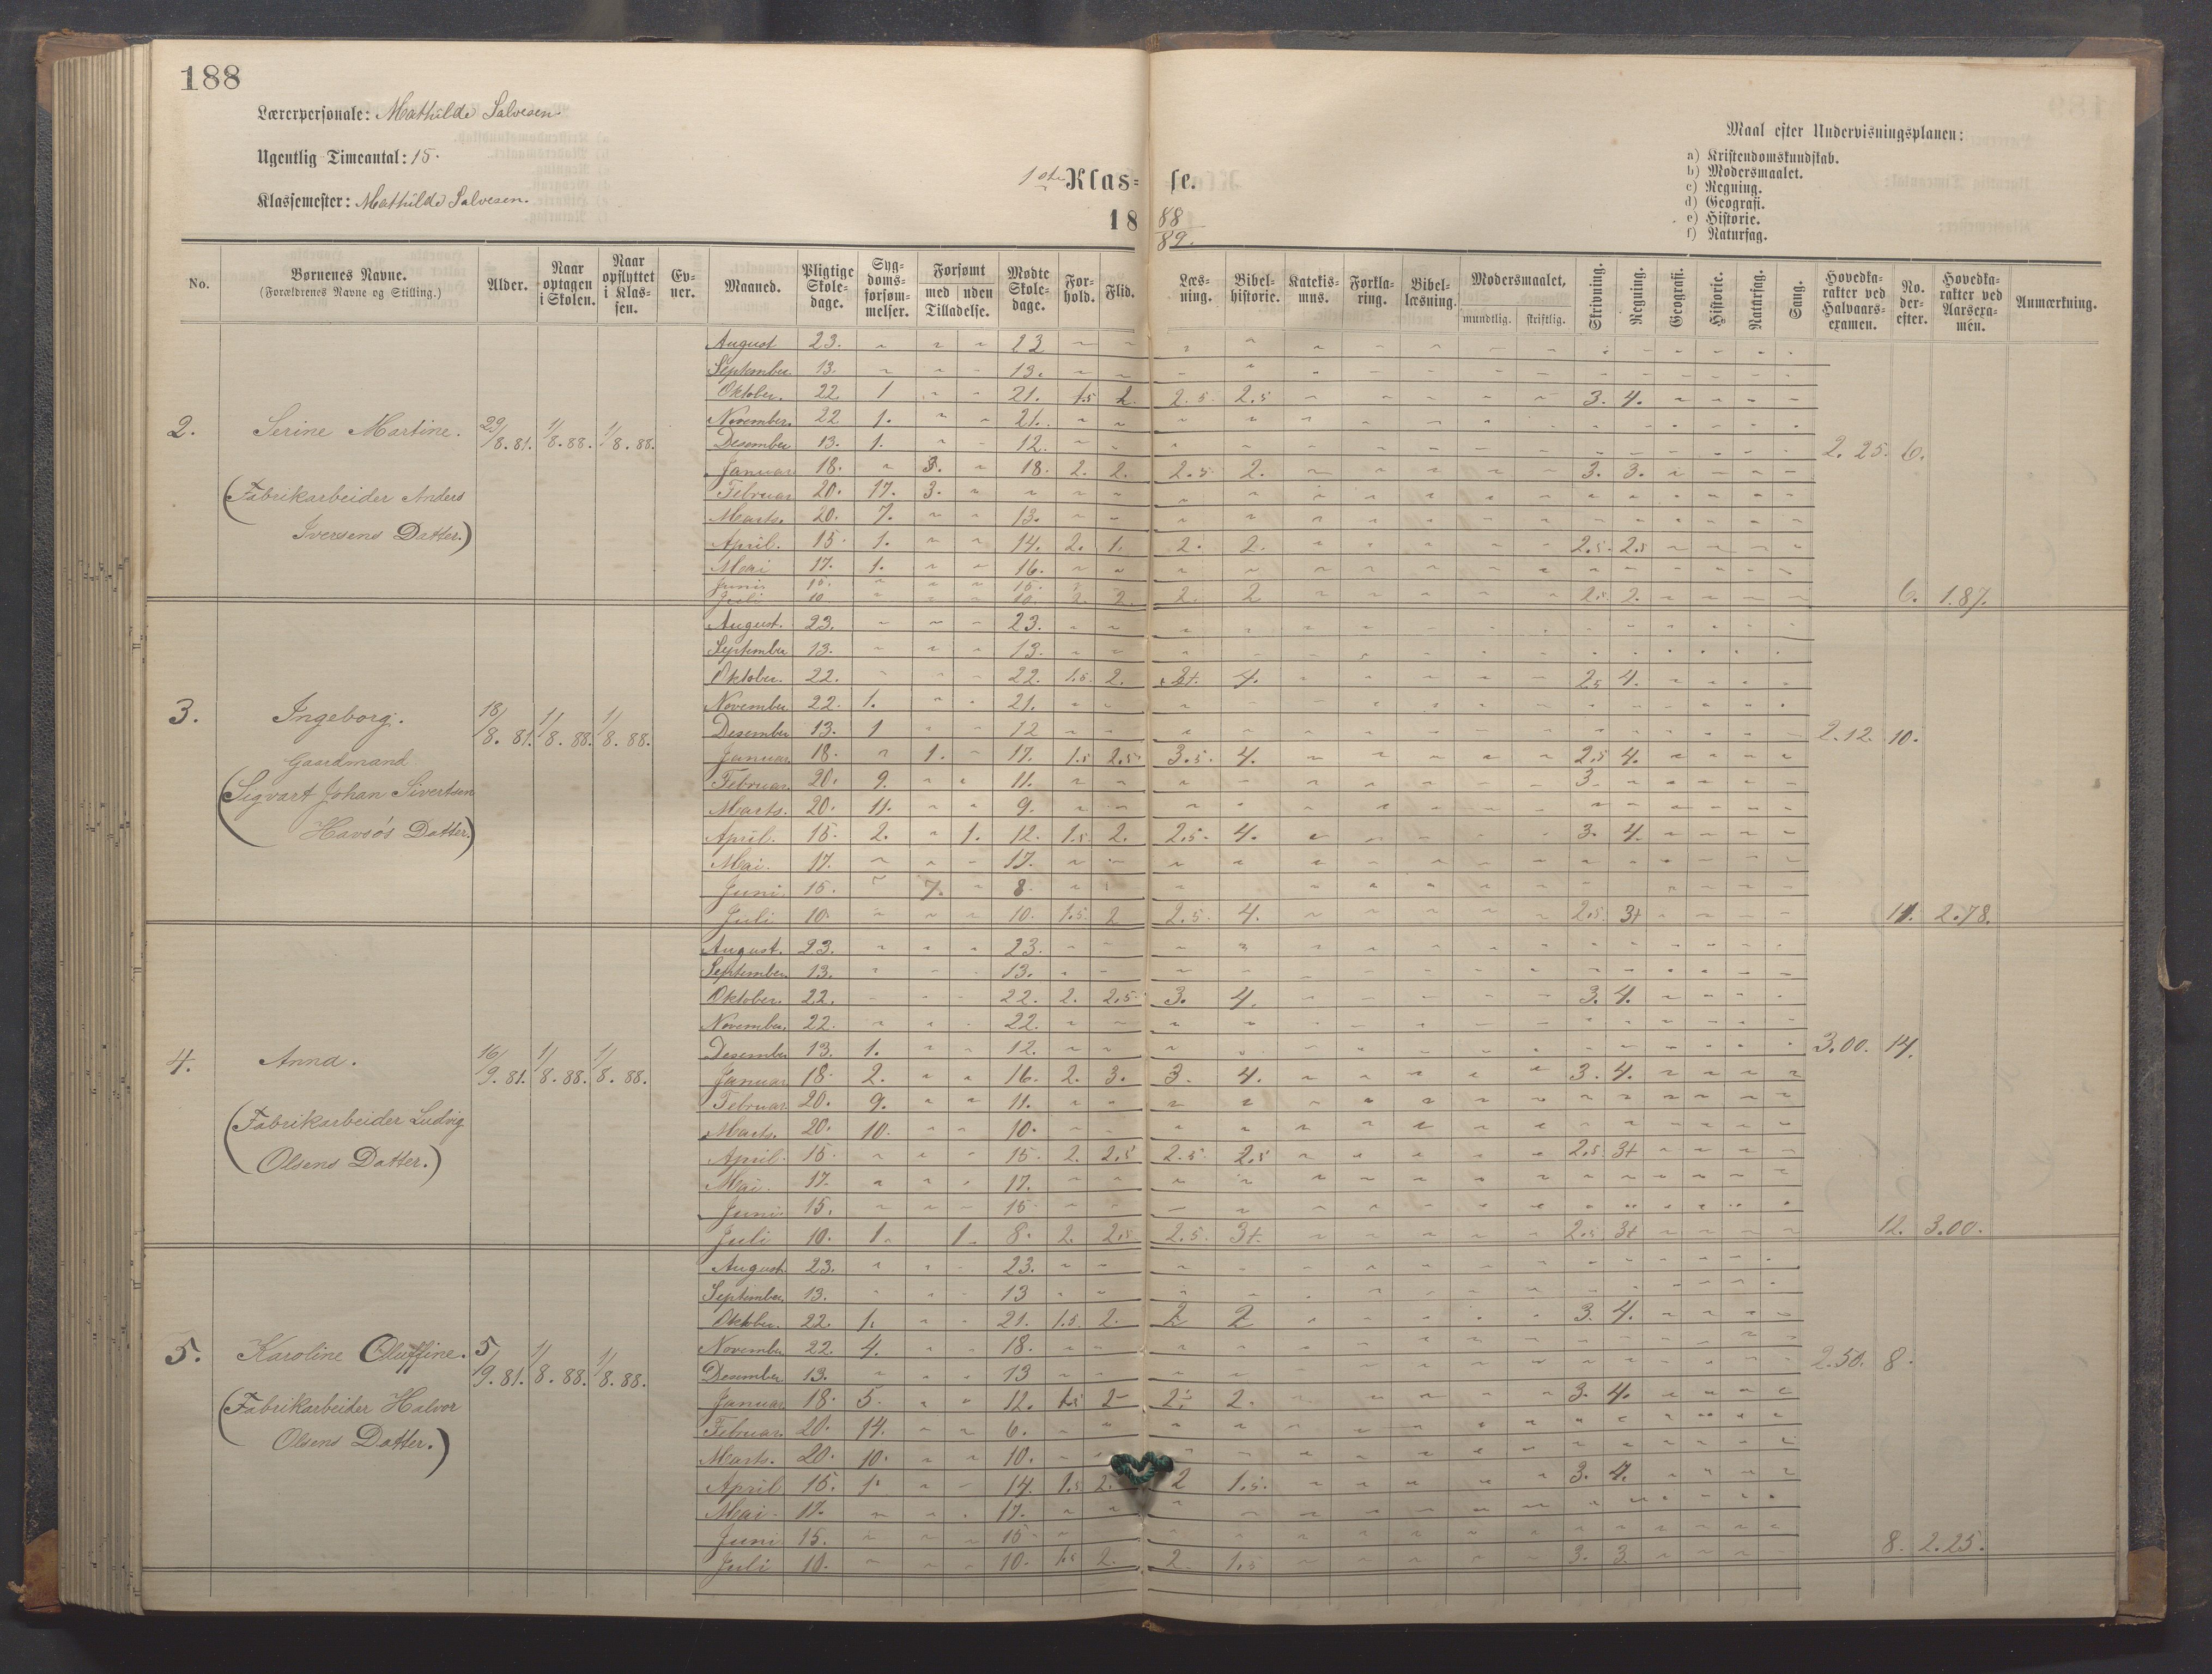 188
Lærerpersonale: Mathilde Salvesen.
Ugentlig Timeantal: 15.
Klassemester: Mathilde Salvesen.
1ste Klas- se.
18 88/89.
Maal efter Undervisningsplanen:
a) Kristendomskundskab.
b) Modersmaalet.
c) Regning.
d) Geografi.
e) Historie.
f) Naturfag.
No. | Børnenes Navne. (Forældrenes Navne og Stilling.) | Alder. | Naar optagen i Skolen. | Naar opflyttet i Klassen. | Evner. | Maaned. | Pligtige Skoledage. | Sygdomsforsømmelser. | Forsømt med uden Tilladelse. | Mødte Skoledage. | Forhold. | Flid. | Læsning. | Bibelhistorie. | Katekismus. | Forklaring. | Bibellæsning. | Modersmaalet, mundtlig. skriftlig. | Skrivning. | Regning. | Geografi. | Historie. | Naturfag. | Sang. | Hovedkarakter ved Halvaarsexamen. | No. derefter. | Hovedkarakter ved Aarsexamen. | Anmærkning.
2. Serine Martine. 29/8.81. 1/8.88. 1/8.88. 2.25. 6.
(Fabrikarbeider Anders
Iversens Datter.)
August 23. 23
September. 13. 13.
Oktober. 22. 1 21. 1.5 2. 2.5. 2.5 3. 4.
November. 22 1. 21.
Desember 13. 1. 12.
Januar 18. 3. 18. 2. 2. 2.5 2. 3. 3.
Februar 20. 17. 3.
Marts. 20. 7. 13.
April. 15. 1. 14. 2. 1. 2. 2. 2.5. 2.5
Mai 17. 1. 16.
Juni 15. 15.
Juli 10 10. 2. 2. 2. 2 2.5. 2. 6. 1.87.
3. Ingeborg. 18/8.81. 1/8.88. 1/8.88. 2.12. 10.
Gaardmand
(Sigvart Johan Sivertsen
Havsøs Datter.)
August. 23. 23.
September 13. 13.
Oktober. 22. 22. 1.5. 2. 3+. 4. 2.5 4.
November 22. 1. 21.
Desember 13. 1 12
Januar 18. 1. 17. 1.5 2.5. 3.5. 4. 2.5 4.
Februar 20. 9. 11. 3.
Marts. 20. 11. 9.
April. 15. 2. 1. 12. 1.5. 2. 2.5. 4. 3. 4.
Mai. 17. 17.
Juni. 15. 7. 8.
Juli 10. 10. 1.5. 2 2.5. 4. 2.5. 3+ 11. 2.78.
4. Anna. 16/9.81. 1/8.88. 1/8.88. 3.00. 14.
(Fabrikarbeider Ludvig
Olsens Datter.)
August. 23. 23.
September. 13. 13.
Oktober. 22. 22. 2. 2.5. 3. 4. 3. 4.
November. 22. 22.
Desember 13. 1. 12.
Januar 18. 2. 16. 2. 3. 3. 4. 3. 4.
Februar. 20. 9. 11.
Marts. 20. 10. 10.
April. 15. 15. 2. 2.5 2.5. 2.5 2.5. 3+
Mai. 17. 17.
Juni. 15. 15.
Juli 10. 1. 1. 8. 2. 2.5. 2.5. 3+. 2.5 3+ 12. 3.00.
5. Karoline Oluffine. 5/9.81. 1/8.88. 1/8.88. 2.50. 8.
(Fabrikarbeider Halvor
Olsens Datter.)
August. 23. 23.
September. 13. 13
Oktober. 22. 1. 21. 1.5. 2. 2 2 3. 4.
November 22. 4. 18.
Desember 13. 13
Januar 18. 5. 12. 1.5 2 2 2. 3. 4.
Februar. 20. 14. 6.
Marts. 20. 10. 10.
April 15. 1. 14. 1.5 2. 2 1.5. 3. 4.
Mai. 17. 17.
Juni 15. 15
Juli 10. 10. 1.5 2. 2. 1.5 3. 3. 8. 2.25.